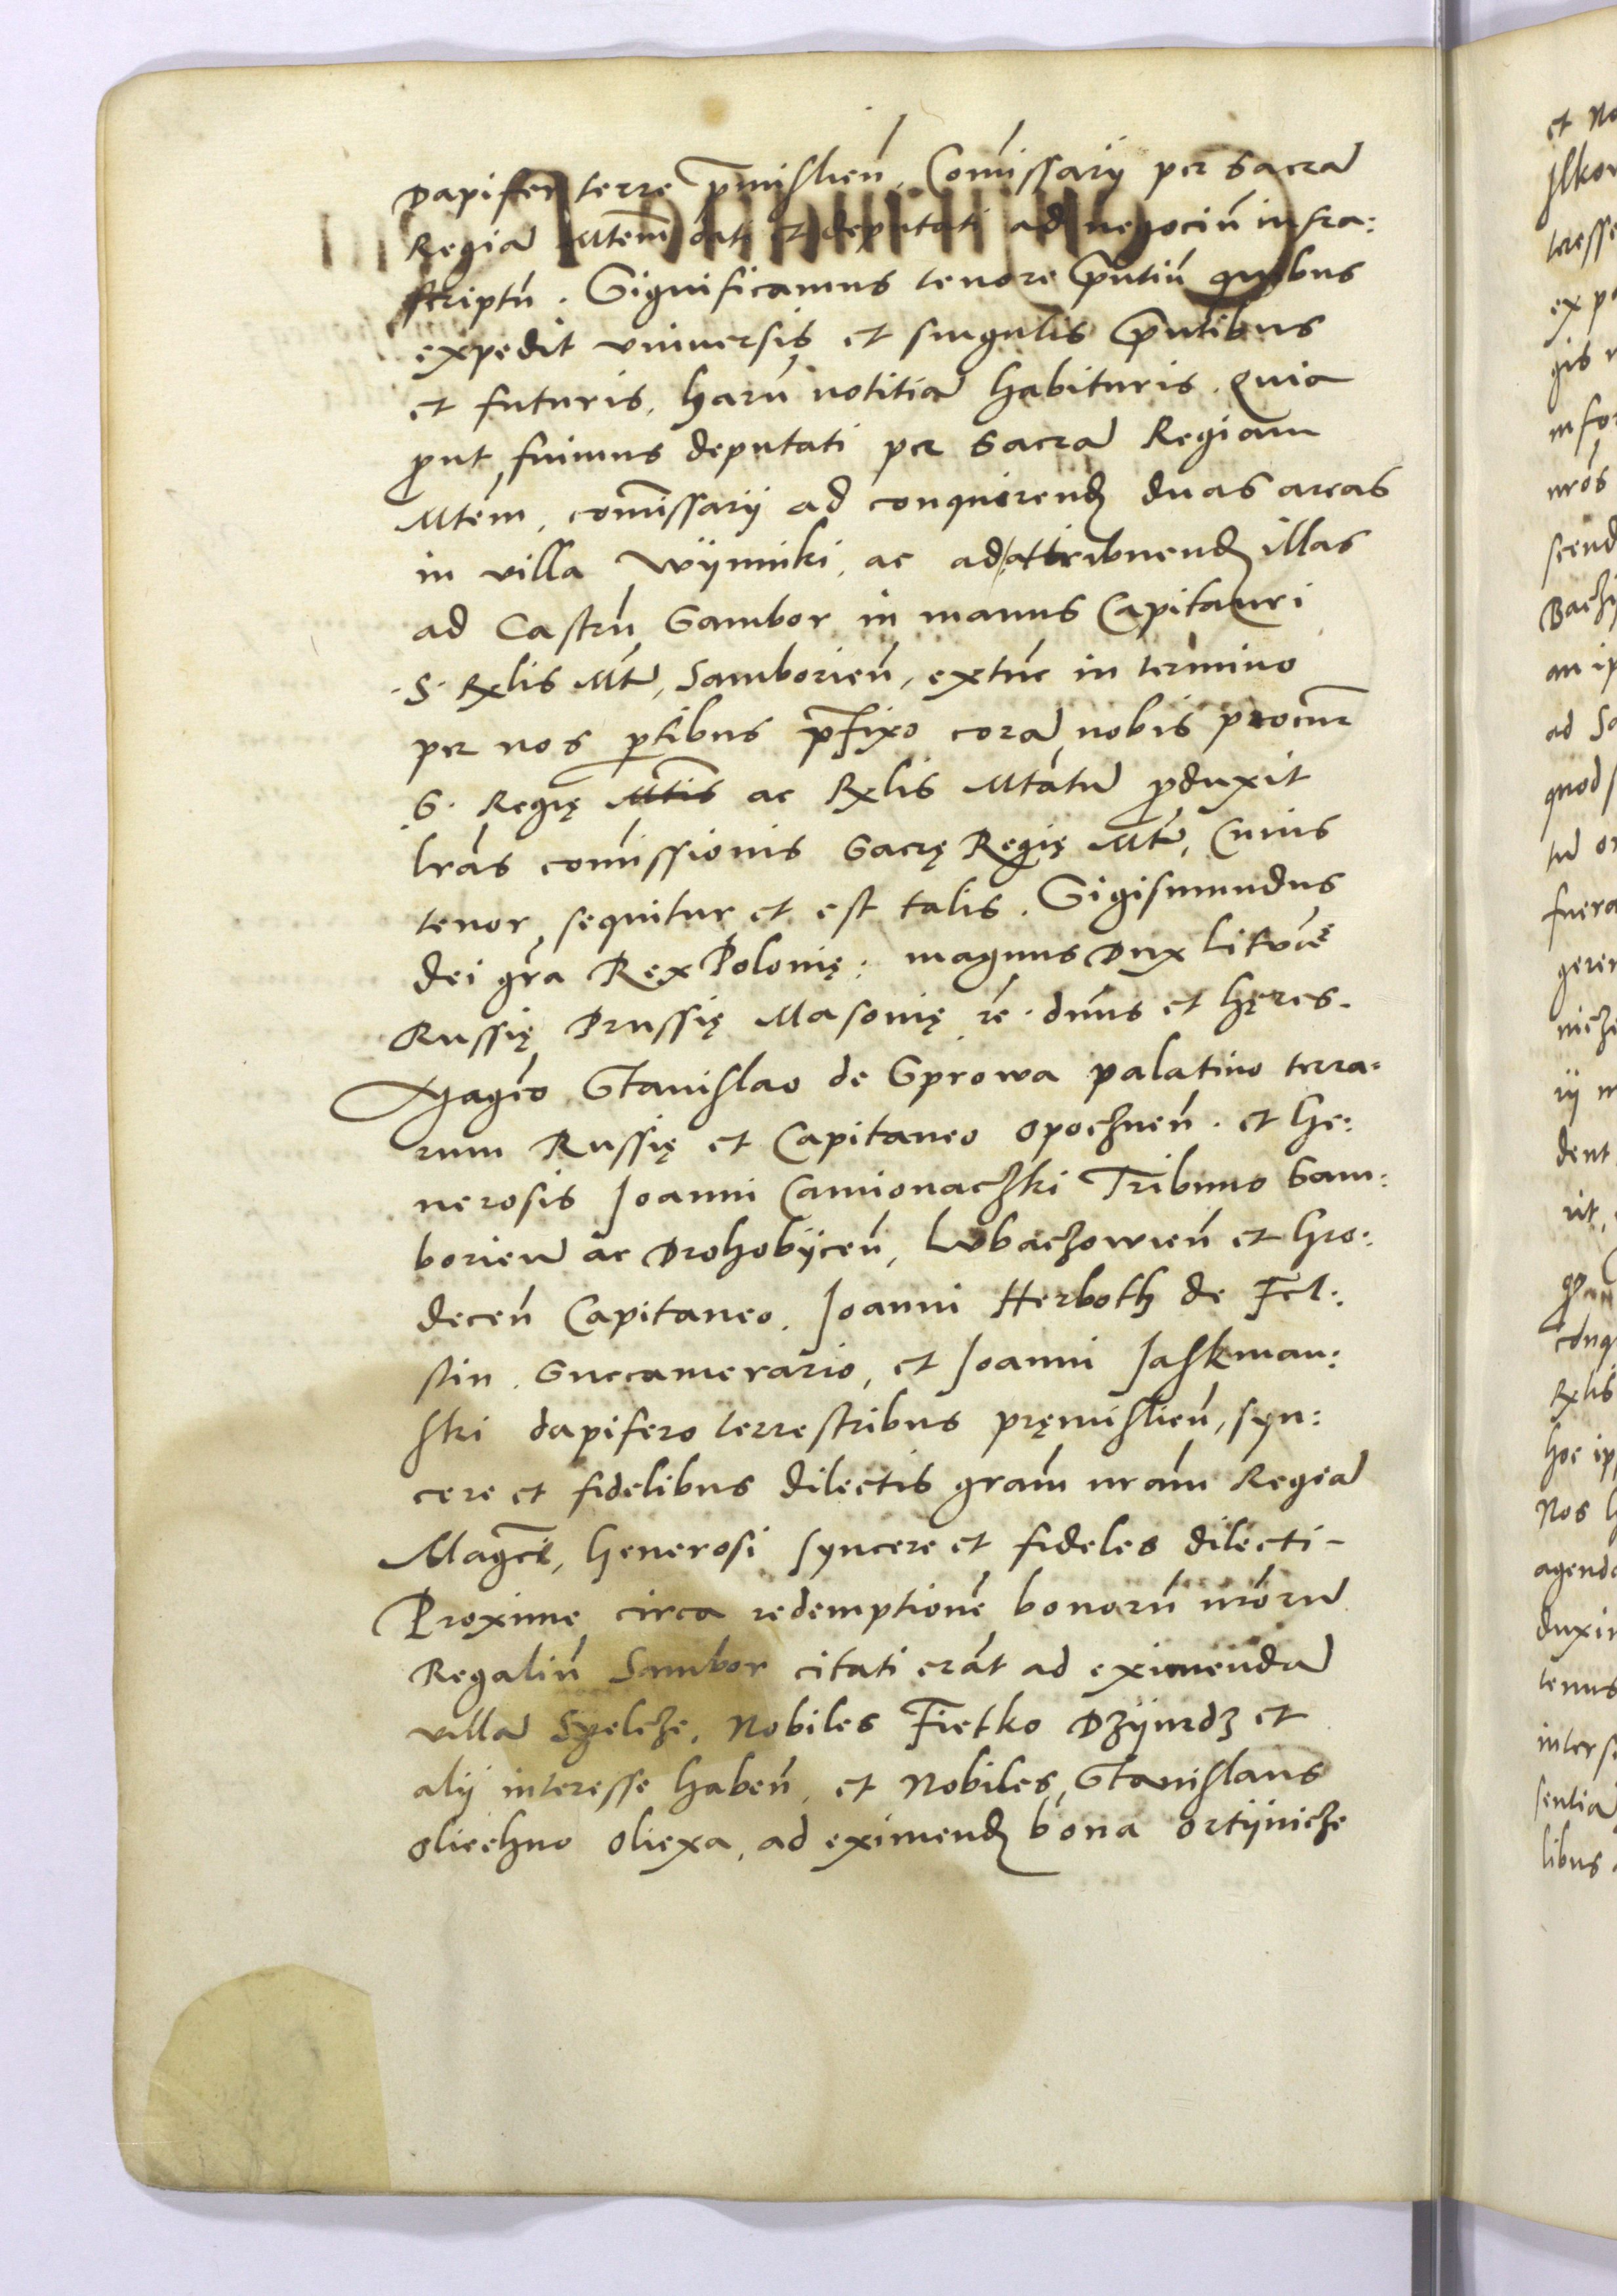 Dapifer terre p̄mislien̄, Com̄issarij per Sacrā
Regiā Mtem̄ dati et deputati ad negociū infra:
scriptū. Significamus tenore p̄ntiū quibus
expedit vniuersis et singulis p̄ntibus
et futuris, harū notitiā habituris. Quia
prout fuimus deputati per Sacrā Regiam
Mtem̄, com̄issarij ad conquirend duas areas
in villa Wÿnniki, ac ad attribuend illas
ad Castrū Sambor in manus Capitanei
.S. Rglis Mtū, Samborien̄, extūc in termino
per nos ptibus p̄fixo corā nobis procur̄
S. Regię Mtis ac Rglis Mtatū produxit
lrās com̄issionis Sacrę Regię Mtū, Cuius
tenor sequitur et est talis. Sigismundus
dei gr̄a Rex Polonię: magnus Dux Litvāę
Russię Prussię Masouię ꝛc̄. dn̄us et hęres.
Magc̄o Stanislao de Sprowa palatino terra:
rum Russię et Capitaneo Opocznen̄. et Ge:
nerosis Joanni Camionaczki Tribuno Sam:
borien̄ ac Drohobÿcen̄, Lvbaczowien̄ et Gro:
decen̄ Capitaneo. Joanni Herborth de Fel:
stin. Succamerario, et Joanni Jaskman:
ski dapifero terrestribus pręmislien̄, syn:
cere et fidelibus dilectis gram̄ nram̄ Regiā
Magc̄i, Generosi syncere et fideles dilecti-
Proxime circa redemptionē bonorū nrōrū
Regaliū Sambor citati erāt ad eximendā
villā Szelcze, Nobiles Fietko Dzÿurdz et
alij interesse haben̄, et Nobiles, Stanislaus
Oliechno Oliexa, ad eximend bona Ortÿnicze